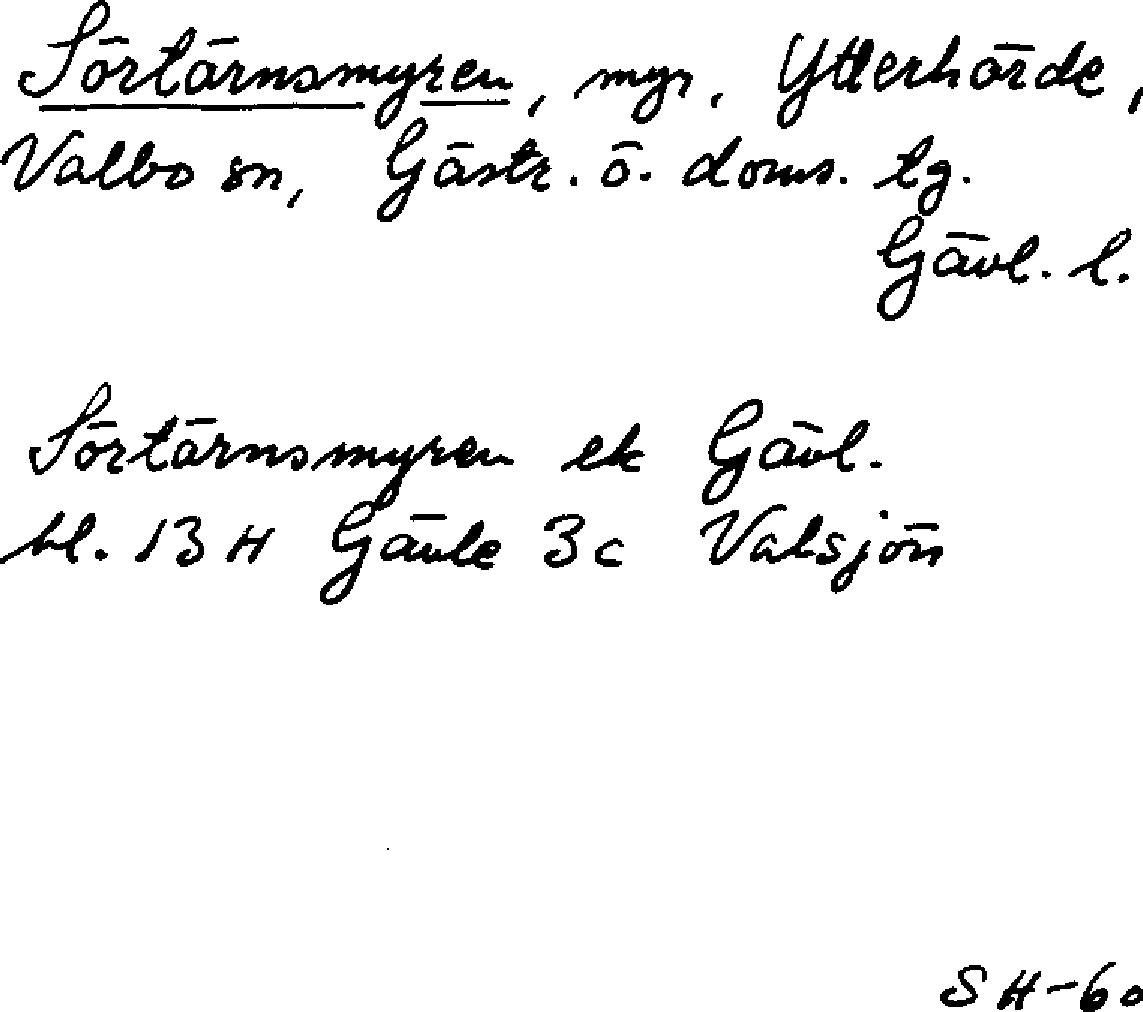 Sörtärnsmyren, myr, Ytterhärde,
Valbo sn, Gästr. ö. doms. tg.
Gävl. l.
Sörtärnsmyren ek Gävl.
bl. 13 H Gävle 3c Valsjön
SH-60